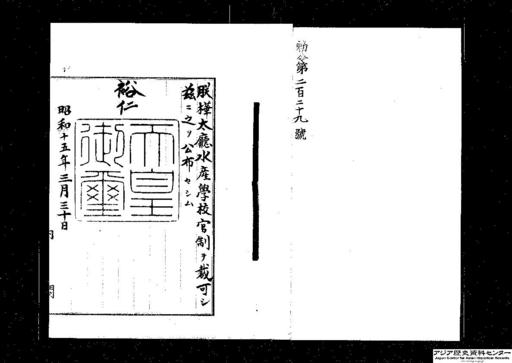 勅令第二百二十九號
朕樺太廳水産學校官制ヲ裁可シ
茲ニ之ヲ公布セシム
裕仁
天皇御璽
昭和十五年三月三十日
内閣
アジア歴史資料センター
Japan Center for Asian Historical Records